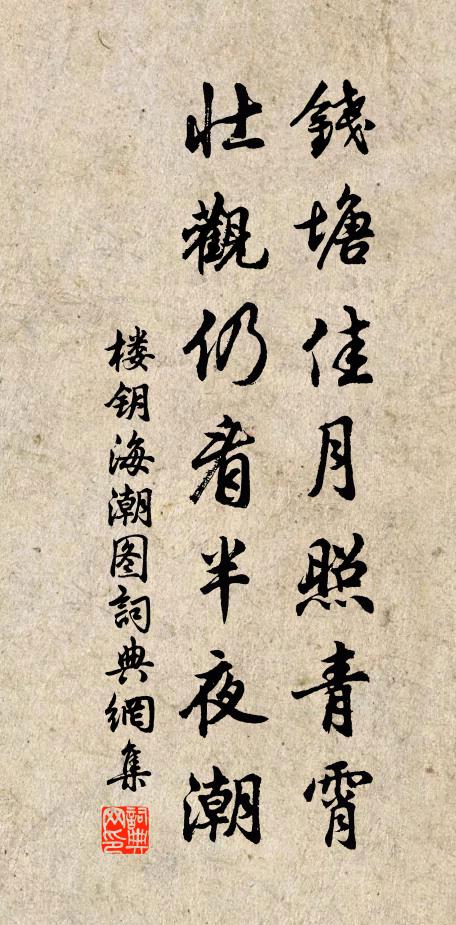 錢塘佳月照青霄
壯觀仍看半夜潮
楼钥海潮图詞典網集
詞典网印